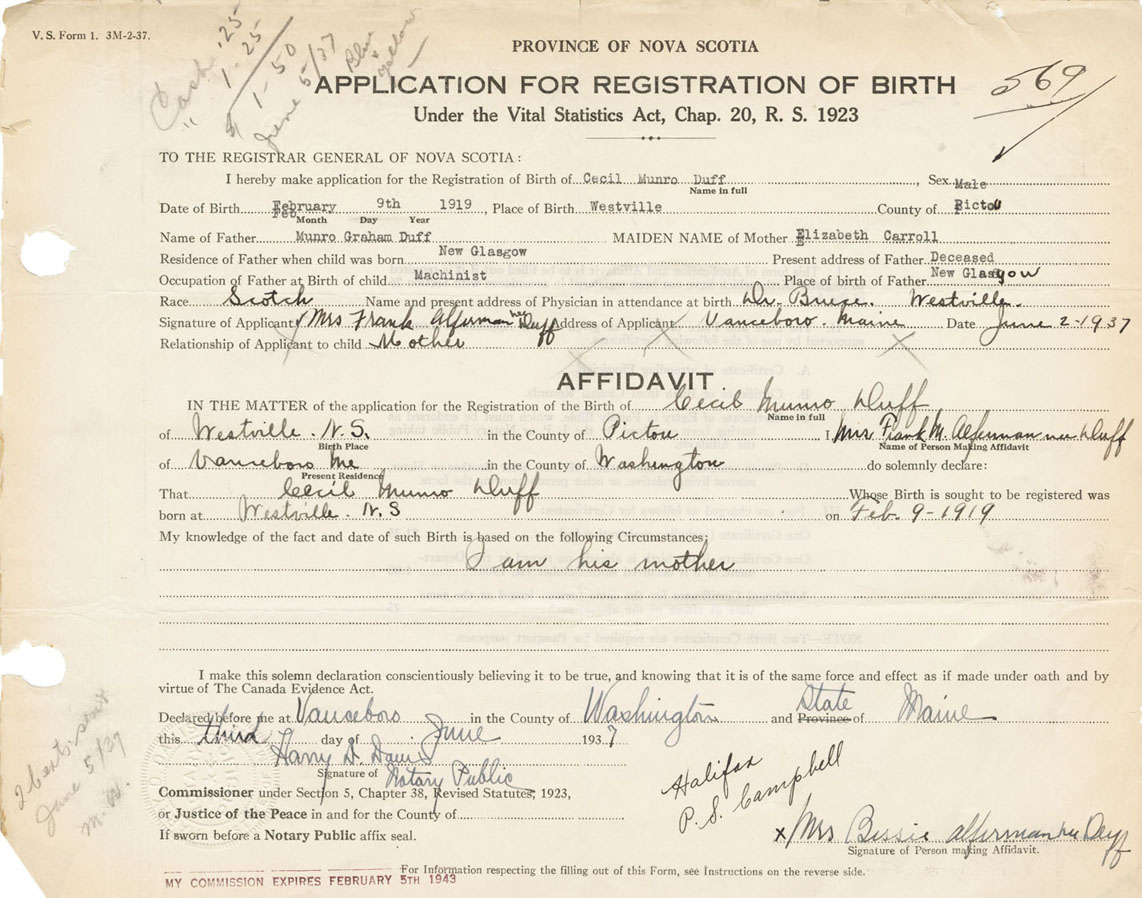 V. S. Form 1. 3M-2-37.
Cash .25
" 1-25
$1-50
June 5/37
Blue
yellow
569
PROVINCE OF NOVA SCOTIA
APPLICATION FOR REGISTRATION OF BIRTH
Under the Vital Statistics Act, Chap. 20, R. S. 1923
TO THE REGISTRAR GENERAL OF NOVA SCOTIA:
I hereby make application for the Registration of Birth of Cecil Munro Duff, Sex Male
Name in full
Date of Birth February 9th 1919, Place of Birth Westville County of Pictou
Month Day Year
Name of Father Munro Graham Duff MAIDEN NAME of Mother Elizabeth Carroll
Residence of Father when child was born New Glasgow Present address of Father Deceased
Occupation of Father at Birth of child Machinist Place of birth of Father New Glasgow
Race Scotch Name and present address of Physician in attendance at birth Dr. Bruce. Westville.
Signature of Applicant Mrs Frank Alferman nee Duff Address of Applicant Vanceboro. Maine Date June 2-1937
Relationship of Applicant to child Mother
AFFIDAVIT.
IN THE MATTER of the application for the Registration of the Birth of Cecil Munro Duff
Name in full
of Westville. N.S. in the County of Pictou I, Mrs Frank M. Alferman nee Duff
Birth Place Name of Person Making Affidavit
of Vanceboro Me in the County of Washington do solemnly declare:
Present Residence
That Cecil Munro Duff Whose Birth is sought to be registered was
born at Westville. N.S on Feb. 9-1919
My knowledge of the fact and date of such Birth is based on the following Circumstances;
I am his mother
I make this solemn declaration conscientiously believing it to be true, and knowing that it is of the same force and effect as if made under oath and by
virtue of The Canada Evidence Act.
Declared before me at Vanceboro in the County of Washington and Province of State Maine
this third day of June 1937
Harry D. Davis
Signature of Notary Public
Commissioner under Section 5, Chapter 38, Revised Statutes, 1923,
or Justice of the Peace in and for the County of
If sworn before a Notary Public affix seal.
Halifax
P. S. Campbell
x Mrs Bessie Alferman nee Duff
Signature of Person making Affidavit.
For Information respecting the filling out of this Form, see Instructions on the reverse side.
MY COMMISSION EXPIRES FEBRUARY 5TH 1943
2 Certs. sent
June 5/37
M. W.